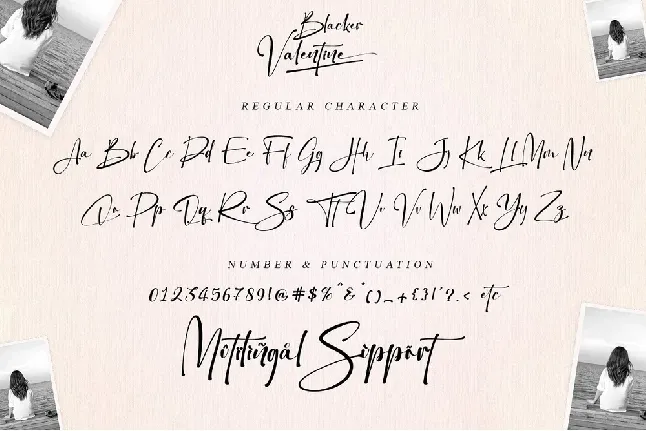 Blacker
Valentine
REGULAR CHARACTER
Aa Bb Cc Dd Ee Ff Gg Hh Ii Jj Kk Ll Mm Nn
Pp Qq Rr Ss Tt Vv Ww Xx Yy Zz
NUMBER & PUNCTUATION
0123456789!@#$%^&*()_+{}|'?.< etc